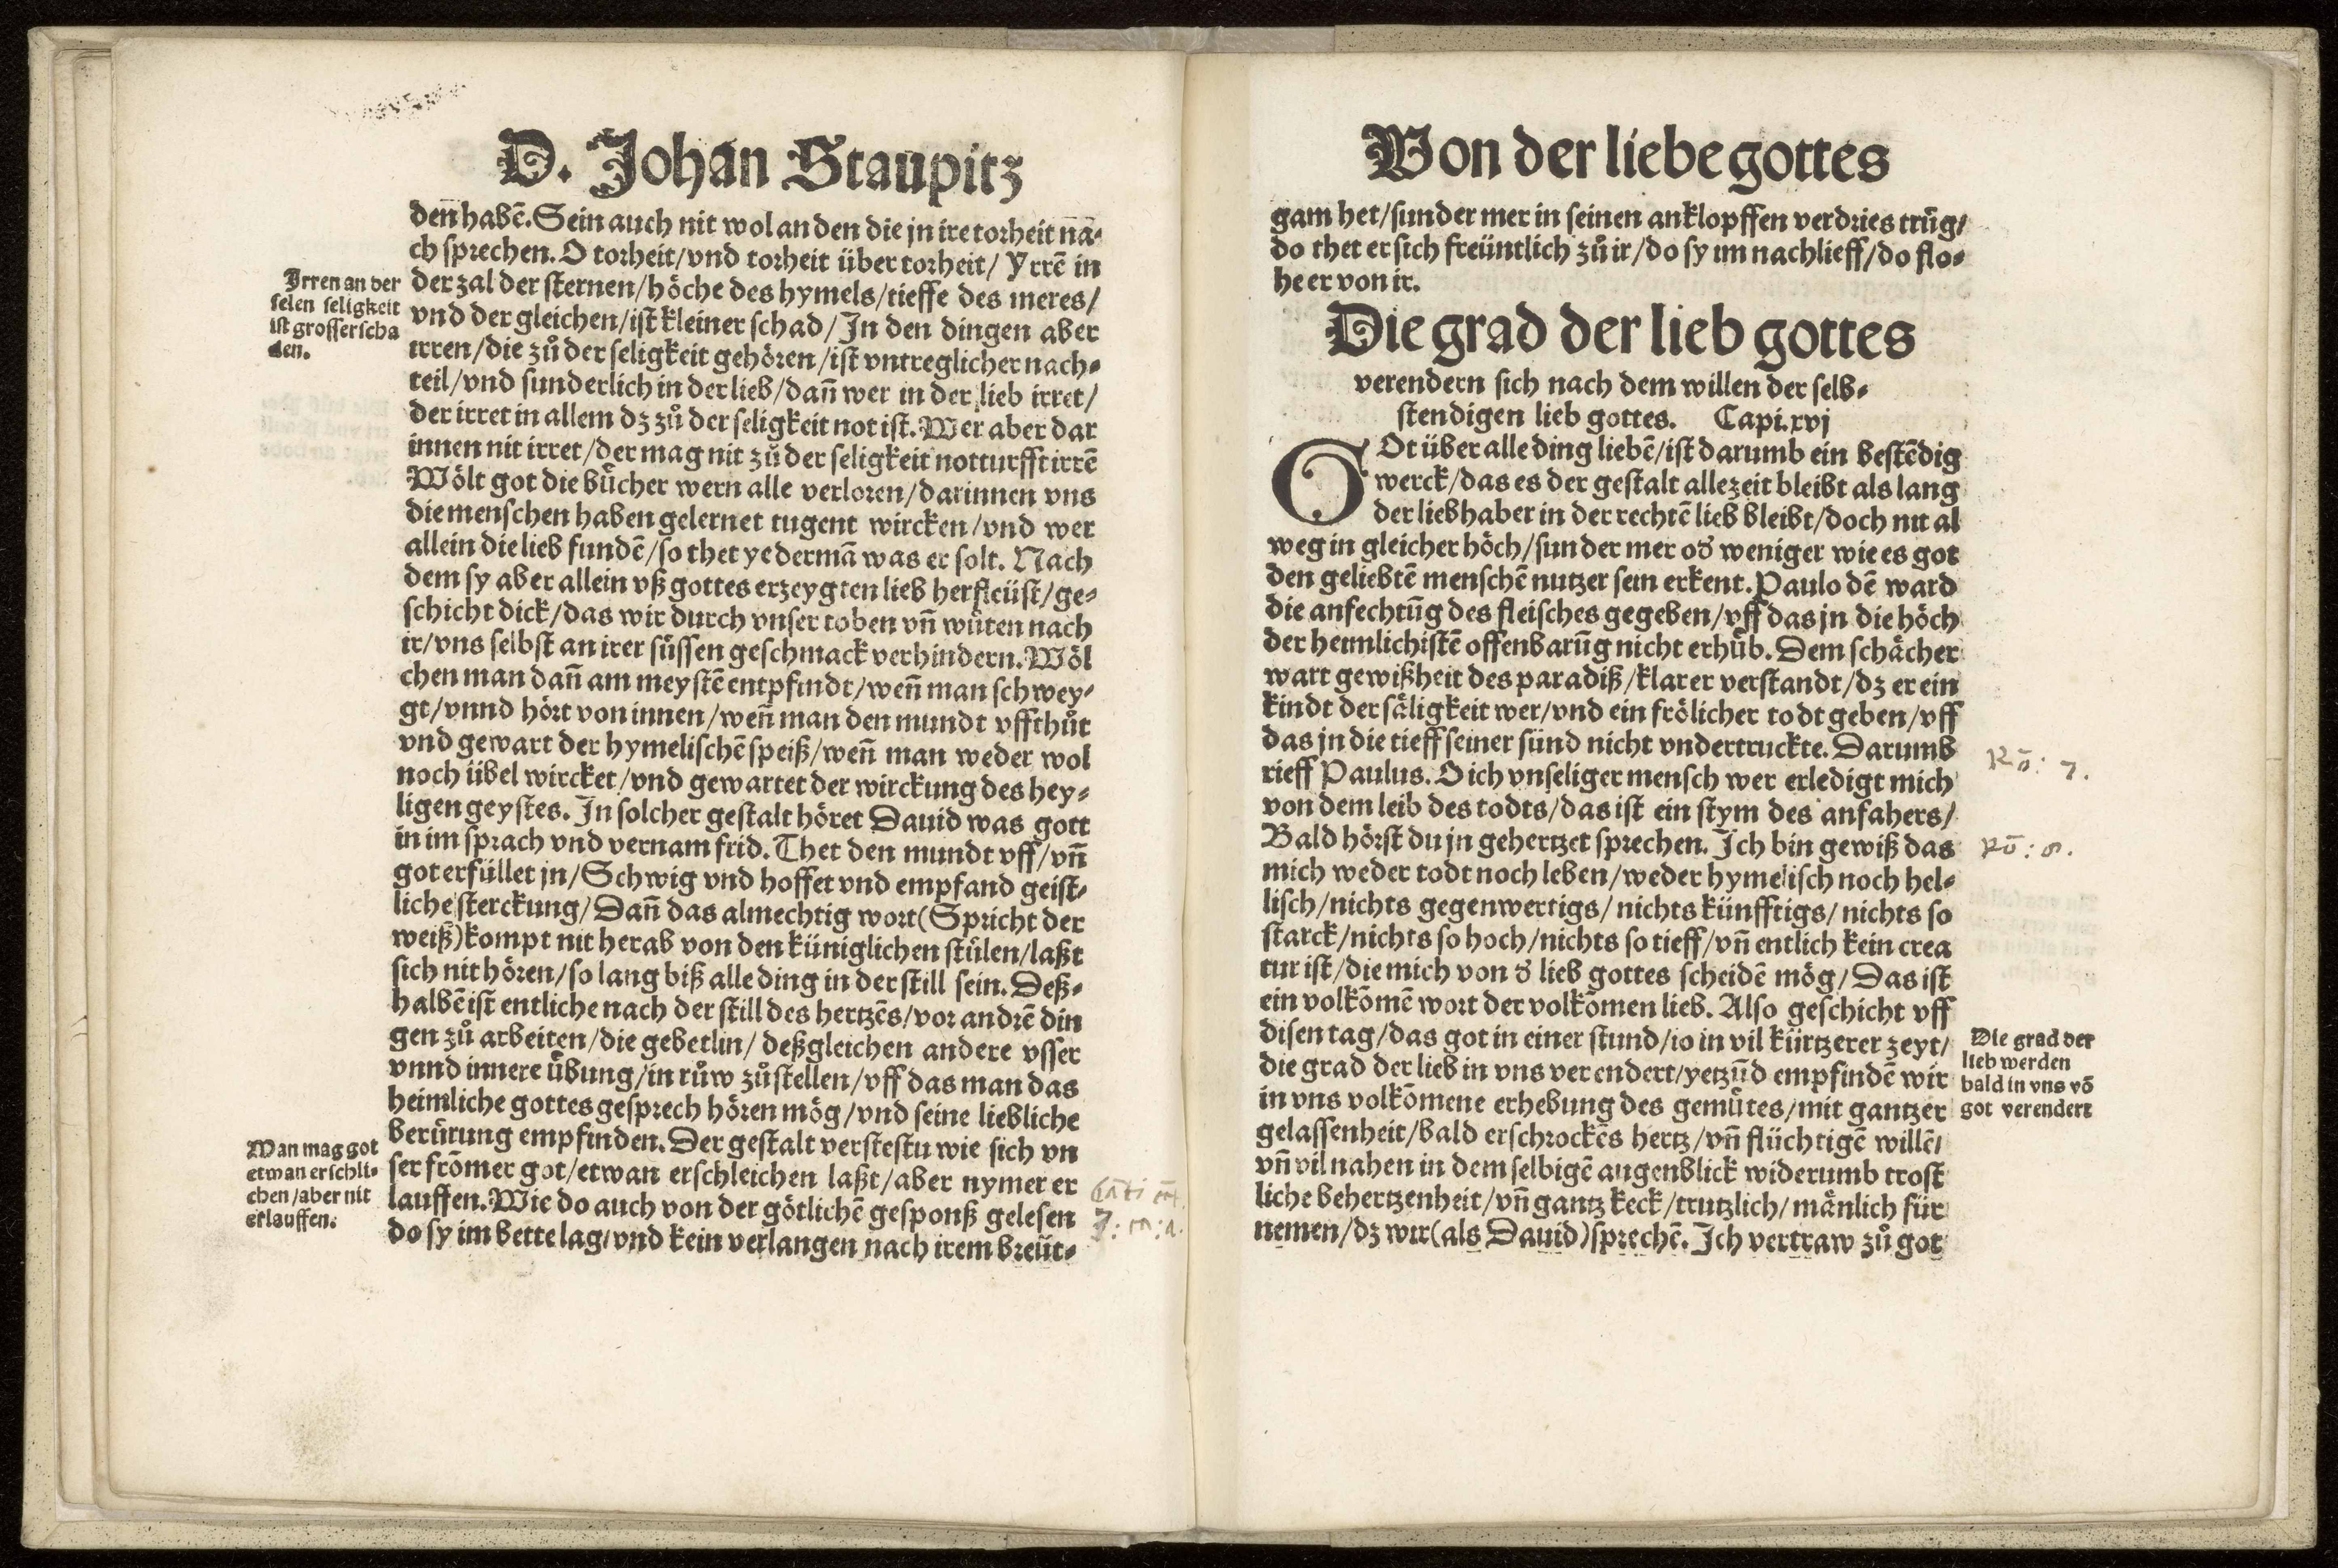 D. Johan Staupitz
den̄ habē. Sein auch nit wol an den die jn ire torheit nā-
ch sprechen. O torheit/vnd torheit über torheit/ Yrrē in
Irren an der
selen seligkeit
ist grosser scha
den.
der zal der sternen/höche des hymels/tieffe des meres/
vnd der gleichen/ist kleiner schad/In den dingen aber
irren/die zů der seligkeit gehören/ist vntreglicher nach-
teil/vnd sunderlich in der lieb/dan̄ wer in der lieb irret/
der irret in allem dz zů der seligkeit not ist. Wer aber dar
innen nit irret/der mag nit zů der seligkeit notturfft irrē
Wölt got die bücher wern alle verloren/darinnen vns
die menschen haben gelernet tugent wircken/vnd wer
allein die lieb fundē/so thet yedermā was er solt. Nach
dem sy aber allein vß gottes erzeygten lieb herfleüst/ge-
schicht dick/das wir durch vnser toben vn̄ wůten nach
ir/vns selbst an irer süssen geschmack verhindern. Wöl
chen man dan̄ am meystē entpfindt/wen̄ man schwey-
gt/vnnd hört von innen/wen̄ man den mundt vffthůt
vnd gewart der hymelischē speiß/wen̄ man weder wol
noch übel wircket/vnd gewartet der wirckung des hey-
ligen geystes. In solcher gestalt höret Dauid was gott
in im sprach vnd vernam frid. Thet den mundt vff/vn̄
got erfüllet jn/Schwig vnd hoffet vnd empfand geist-
liche sterckung/Dan̄ das almechtig wort(Spricht der
weiß)kompt nit herab von den küniglichen stůlen/laßt
sich nit hören/so lang biß alle ding in der still sein. Deß-
halbē ist entliche nach der still des hertzēs/vor andrē din
gen zů arbeiten/die gebetlin/ deßgleichen andere vsser
vnnd innere übung/in růw zů stellen/vff das man das
heimliche gottes gesprech hören mög/vnd seine liebliche
berürung empfinden. Der gestalt verstestu wie sich vn
Man mag got
etwan erschli-
chen/aber nit
erlauffen.
ser frōmer got/etwan erschleichen laßt/aber nymer er
lauffen. Wie do auch von der götlichē gesponß gelesen
do sy im bette lag/vnd kein verlangen nach irem breüt-
Von der liebe gottes
gam het/sunder mer in seinen anklopffen verdries trůg/
do thet er sich freüntlich zů ir/do sy im nachlieff/do flo-
he er von ir.
Die grad der lieb gottes
verendern sich nach dem willen der selb-
stendigen lieb gottes. Capi.xvj
GOt über alle ding liebē/ist darumb ein bestēdig
werck/das es der gestalt allezeit bleibt als lang
der liebhaber in der rechtē lieb bleibt/doch nit al
weg in gleicher höch/sunder mer oď weniger wie es got
den geliebtē menschē nutzer sein erkent. Paulo dē ward
die anfechtūg des fleisches gegeben/vff das jn die höch
der heimlichistē offenbarūg nicht erhüb. Dem schächer
wart gewißheit des paradiß/klarer verstandt/dz er ein
kindt der säligkeit wer/vnd ein frölicher todt geben/vff
das jn die tieff seiner sünd nicht vndertruckte. Darumb
rieff Paulus. O ich vnseliger mensch wer erledigt mich
Rō: 7.
von dem leib des todts/das ist ein stym des anfahers/
Bald hörst du jn gehertzet sprechen. Ich bin gewiß das
Rō: 8.
mich weder todt noch leben/weder hymelisch noch hel-
lisch/nichts gegenwertigs/nichts künfftigs/nichts so
starck/nichts so hoch/nichts so tieff/vn̄ entlich kein crea
tur ist/die mich von ď lieb gottes scheidē mög/Das ist
ein volkōmē wort der volkōmen lieb. Also geschicht vff
disen tag/das got in einer stund/io in vil kürtzerer zeyt/
die grad der lieb in vns verendert/yetzūd empfindē wir
in vns volkōmene erhebung des gemütes/mit gantzer
Die grad der
lieb werden
bald in vns vō
got verendert
gelassenheit/bald erschrockēs hertz/vn̄ flüchtigē willē/
vn̄ vil nahen in dem selbigē augenblick widerumb trost
liche behertzenheit/vn̄ gantz keck/trutzlich/mänlich für
nemen/dz wir(als Dauid)sprechē. Ich vertraw zů got